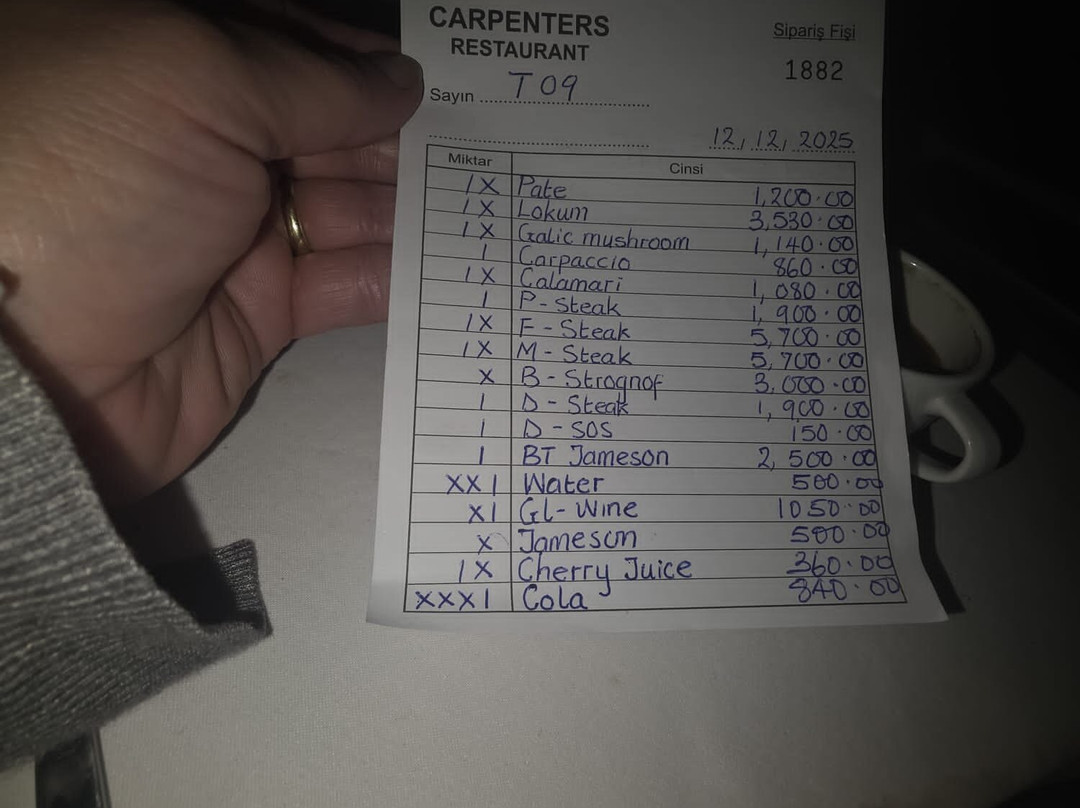 CARPENTERS
RESTAURANT
Sipariş Fişi
1882
Sayın T 09
12, 12, 2025
Miktar Cinsi
1X Pate 1,200.00
1X Lokum 3,530.00
1X Galic mushroom 1,140.00
1 Carpaccio 860.00
1X Calamari 1,080.00
1 P-Steak 1,900.00
1X F-Steak 5,700.00
1X M-Steak 5,700.00
X B-Strognof 3,000.00
1 D-Steak 1,900.00
1 D-SOS 150.00
1 BT Jameson 2,500.00
XX1 Water 500.00
X1 Gl-Wine 1050.00
X Jameson 500.00
1X Cherry Juice 360.00
XXX1 Cola 840.00